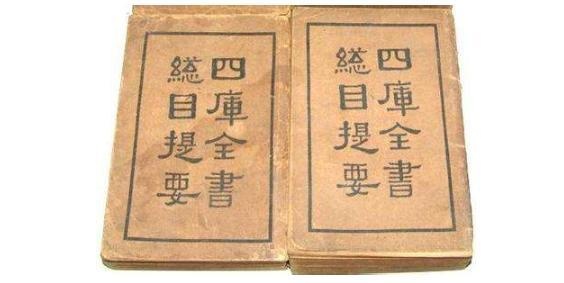 四庫全書
總目提要
四庫全書
總目提要